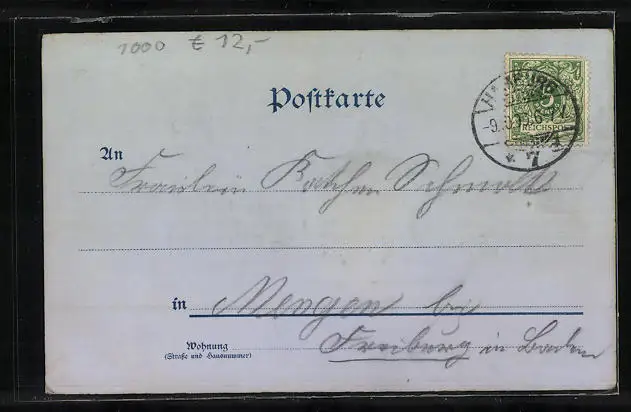 1000 € 12,-
Postkarte
HAMBURG
REICHSPOST
7
An
Fräulein Käthchen Schmidt
in Mengen bei
Wohnung
(Straße und Hausnummer)
Freiburg in Baden